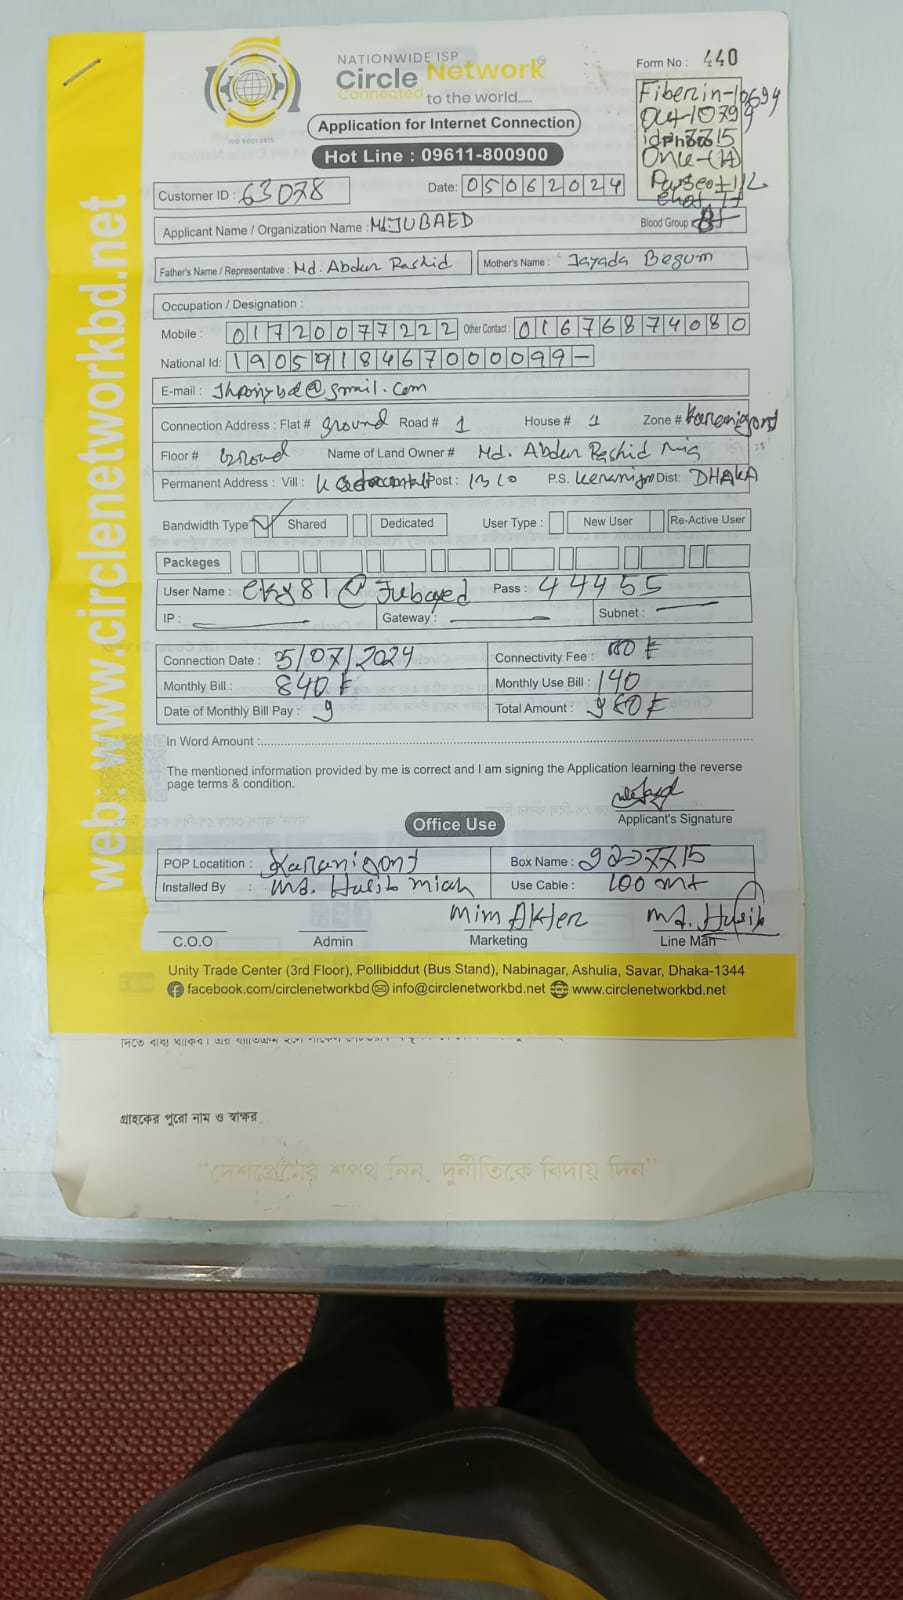 NATIONWIDE ISP
Circle Network
Connected to the world.....
ISO 9001:2015
Form No : 440
Application for Internet Connection
Hot Line : 09611-800900
Fiber in-10694
Out-10799
id-7715
Photo
Onu-(H)
Customer ID : 63078
Date: 05062024
Applicant Name / Organization Name : Md. JUBAED
Blood Group B+
Father's Name / Representative : Md. Abdur Rashid
Mother's Name : Jayada Begum
Occupation / Designation :
Mobile : 01720077222 Other Contact : 01676874080
National Id: 1905918467000099-
E-mail : @gmail.com
Connection Address : Flat # ground Road # 1 House # 1 Zone # Karanigonj
Floor # Groud Name of Land Owner # Md. Abdur Rashid Mia
Permanent Address : Vill : Post : 1310 P.S. Keranigonj Dist: DHAKA
Bandwidth Type Shared Dedicated User Type : New User Re-Active User
Packeges
User Name : cky81@Jubayed Pass : 44455
IP : Gateway : Subnet :
Connection Date : 5/07/2024 Connectivity Fee :
Monthly Bill : 840 ৳ Monthly Use Bill : 140
Date of Monthly Bill Pay : 9 Total Amount : 980 ৳
In Word Amount :
The mentioned information provided by me is correct and I am signing the Application learning the reverse
page terms & condition.
Applicant's Signature
Office Use
POP Locatition : Karanigonj Box Name : 7715
Installed By : Md. Hasib Miah Use Cable : 100 mt
Mim Akter Md. Hasib
C.O.O Admin Marketing Line Man
Unity Trade Center (3rd Floor), Pollibiddut (Bus Stand), Nabinagar, Ashulia, Savar, Dhaka-1344
facebook.com/circlenetworkbd info@circlenetworkbd.net www.circlenetworkbd.net
web: www.circlenetworkbd.net
গ্রাহকের পুরো নাম ও স্বাক্ষর
“দেশপ্রেমের শপথ নিন, দুর্নীতিকে বিদায় দিন”